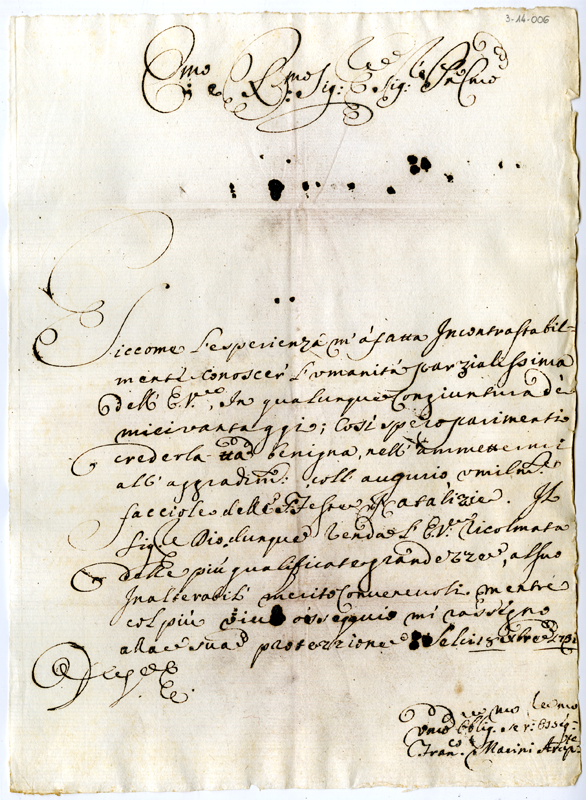 3-14-006
Emo e Rmo Sig: Sig:
Siccome l'esperienza m'à fatta Incontrastabil-
mente conoscer l'umanità parzialissima
dell'E.V., In qualunque congiuntura de'
miei vantaggi; Così spero parimenti
crederla benigna, nell'ammettermi
all'aggradim: coll'augurio, umilm.
faccio le delle S. Feste Natalizie. Il
Sig.e Dio, dunque renda l'E.V. Ricolmata
delle più qualificate grandezze, al suo
Inalterabil merito Convenevoli mentre
col più vivo ossequio mi rassegno
alla sua protezzione Selci
D.
Umo Obblig. ser.
Fran.co Macini Arcip.